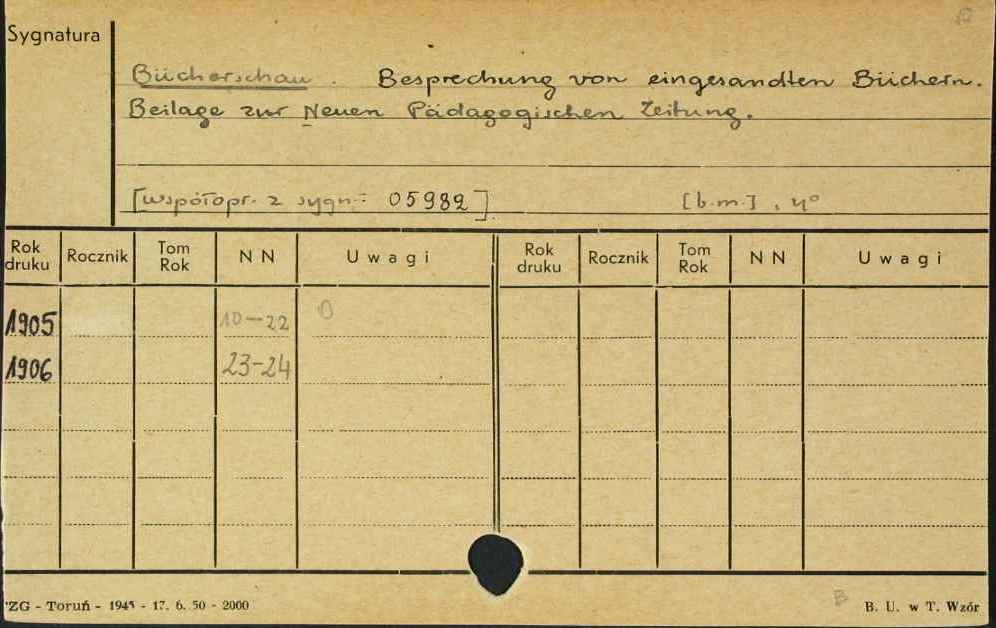 Sygnatura
Bücherschau. Besprechung von eingesandten Büchern.
Beilage zur Neuen Pädagogischen Zeitung.
[współopr. z sygn: 05982] [b.m.], 4°
Rok druku Rocznik Tom Rok NN Uwagi Rok druku Rocznik Tom Rok NN Uwagi
1905 10-22 0
1906 23-24
ZG - Toruń - 1945 - 17. 6. 50 - 2000 B B. U. w T. Wzór